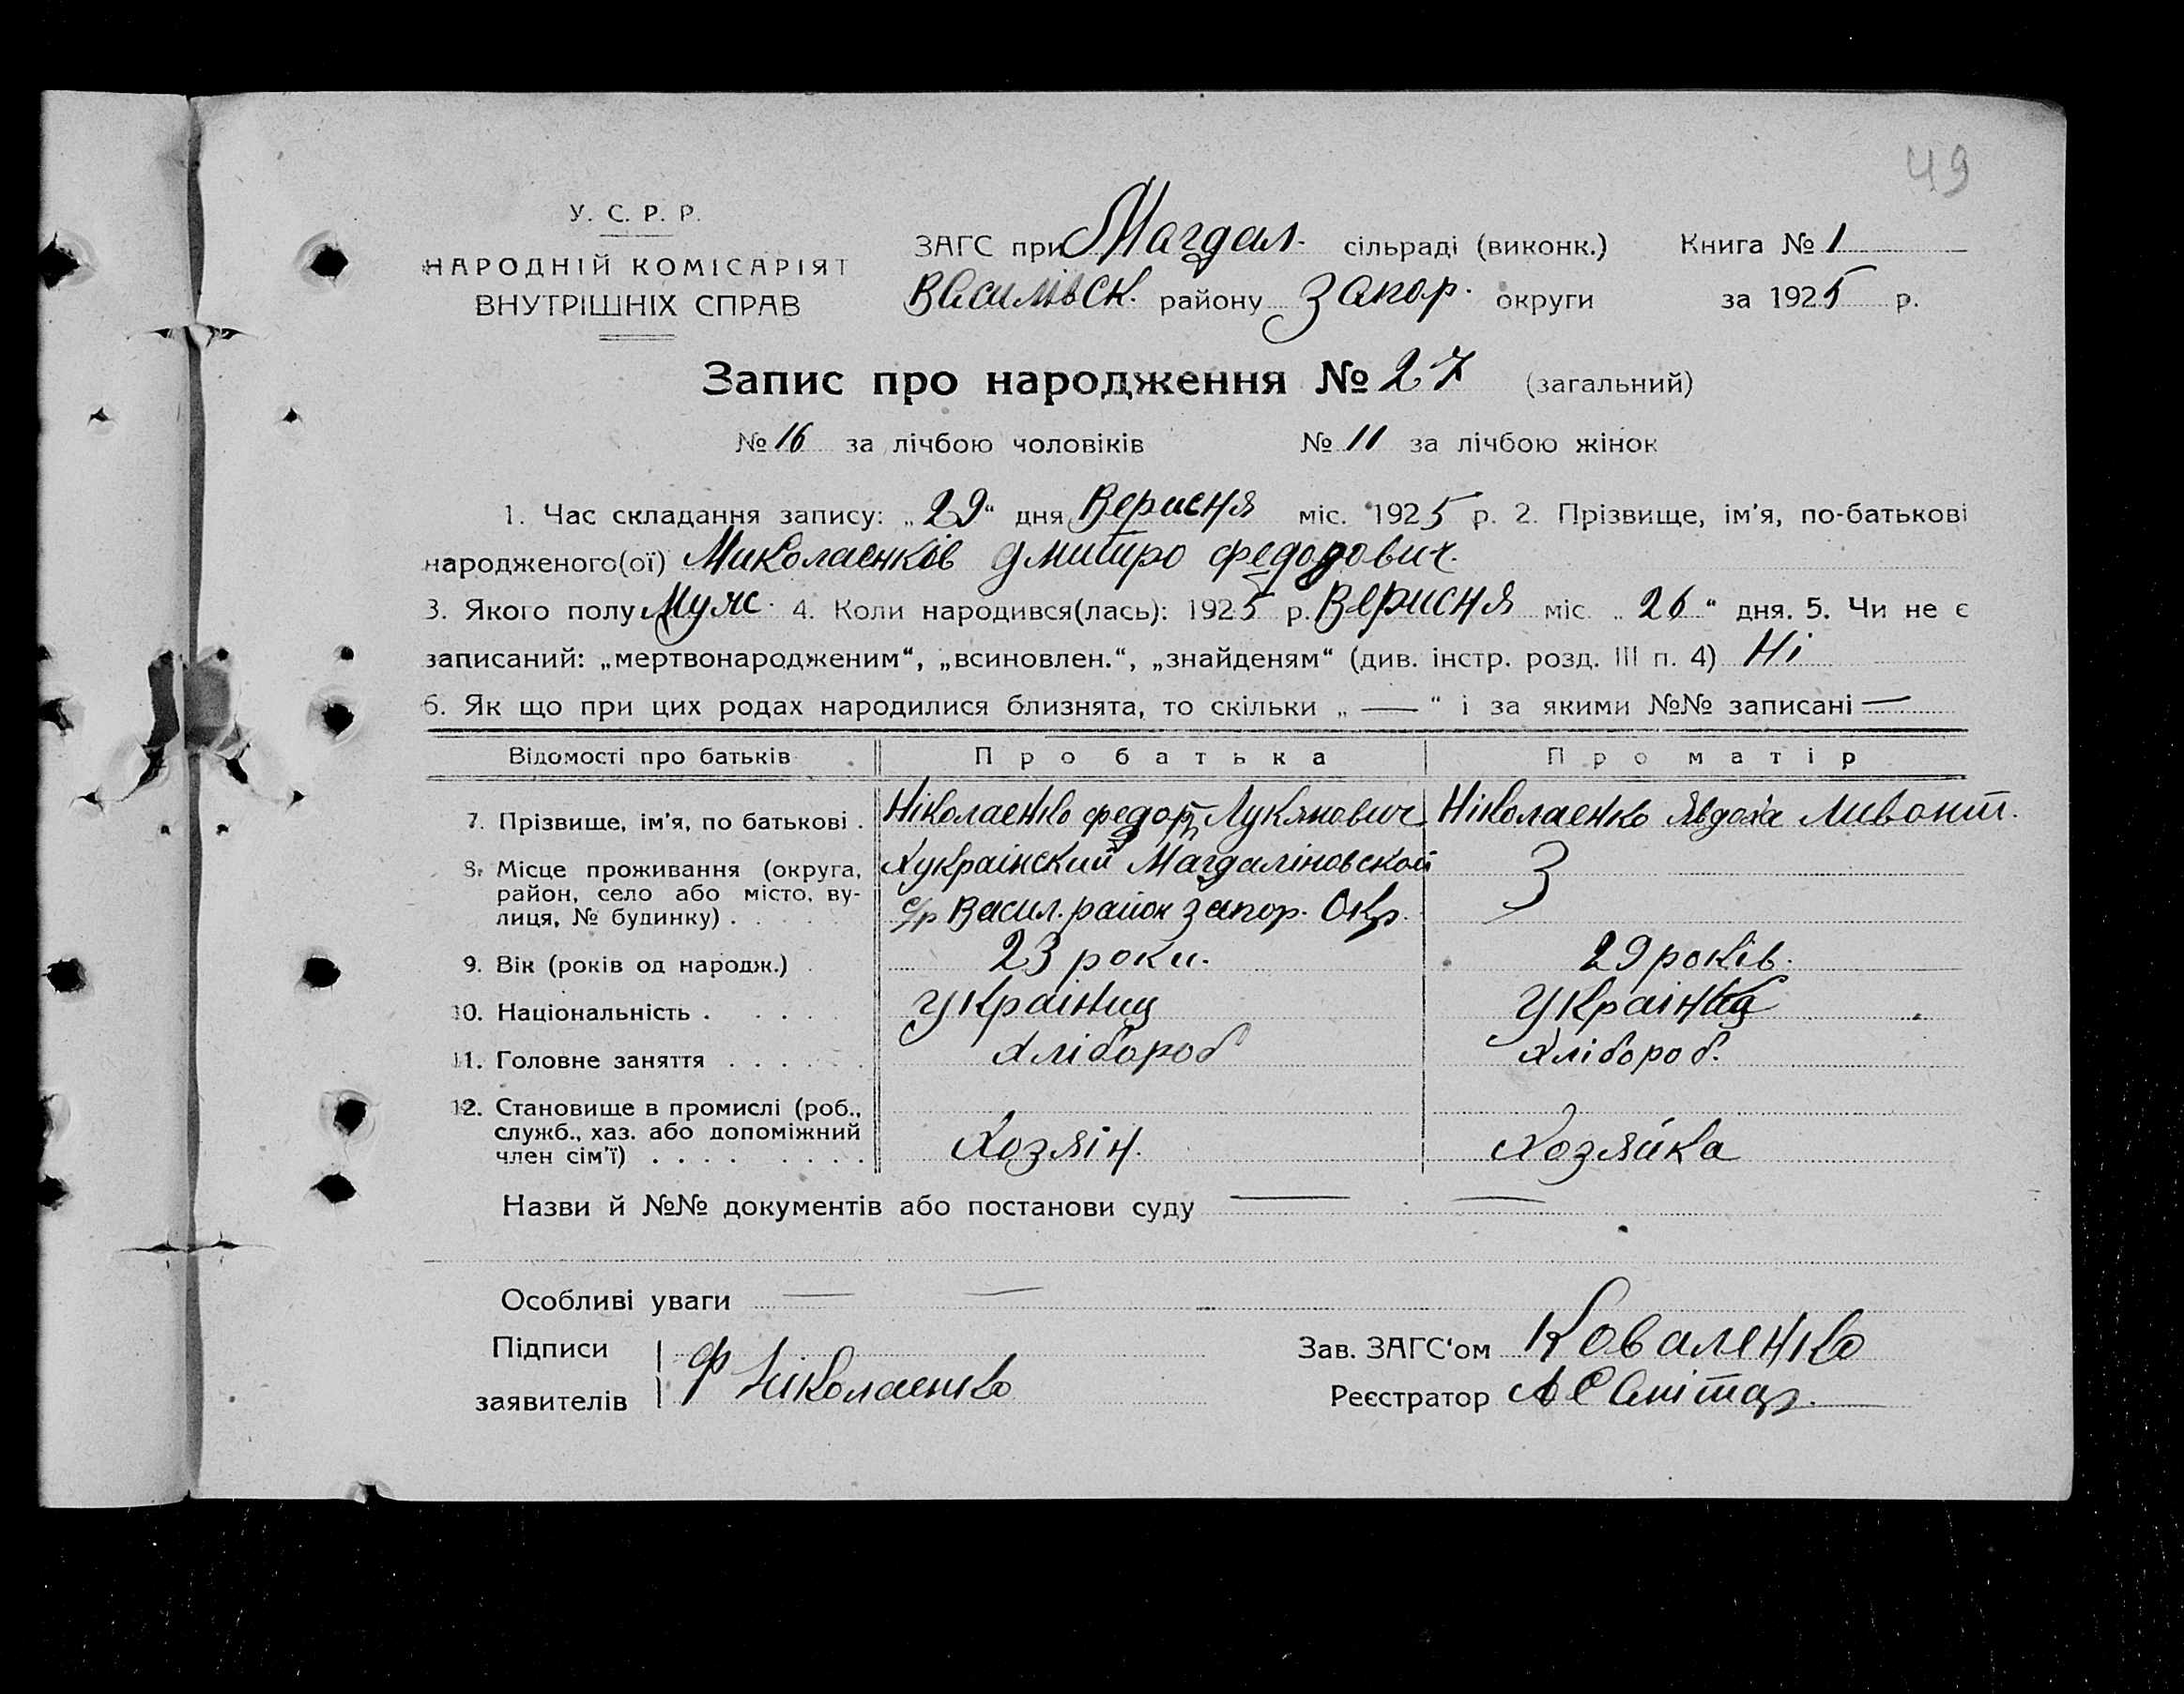 49
У. С. Р. Р.
НАРОДНІЙ КОМІСАРІЯТ
ВНУТРІШНІХ СПРАВ
ЗАГС при Магдал. сільраді (виконк.) Книга № 1
Василівск. району Запор. округи за 1925 р.
Запис про народження № 27 (загальний)
№ 16 за лічбою чоловіків № 11 за лічбою жінок
1. Час складання запису: „29“ дня Верисня міс. 1925 р. 2. Прізвище, ім'я, по-батькові
народженого(ої) Миколаенків Дмитро Федорович.
3. Якого полу Муж. 4. Коли народився(лась): 1925 р. Верисня міс. „26“ дня. 5. Чи не є
записаний: „мертвонародженим“, „всиновлен.“, „знайденям“ (див. інстр. розд. III п. 4) Ні
6. Як що при цих родах народилися близнята, то скільки „—“ і за якими №№ записані —
Відомості про батьків Про батька Про матір
7. Прізвище, ім'я, по батькові . Ніколаенко Федор Лукянович Ніколаенко Явдоха Ливонт.
8. Місце проживання (округа, район, село або місто, вулиця, № будинку) . Хукраінский Магдаліновской
с/р Васил. район Запор. Окр.
9. Вік (років од народж.) 23 роки. 29 років.
10. Національність . . . . . Украінец Украінка
11. Головне заняття . . . . . . Хлібороб Хлібороб.
12. Становище в промислі (роб., служб., хаз. або допоміжний член сім'ї) . . . . . . . . Хозяін. Хозяйка
Назви й №№ документів або постанови суду — —
Особливі уваги — —
Підписи
заявителів Ф Ніколаенко
Зав. ЗАГС'ом Коваленко
Реєстратор